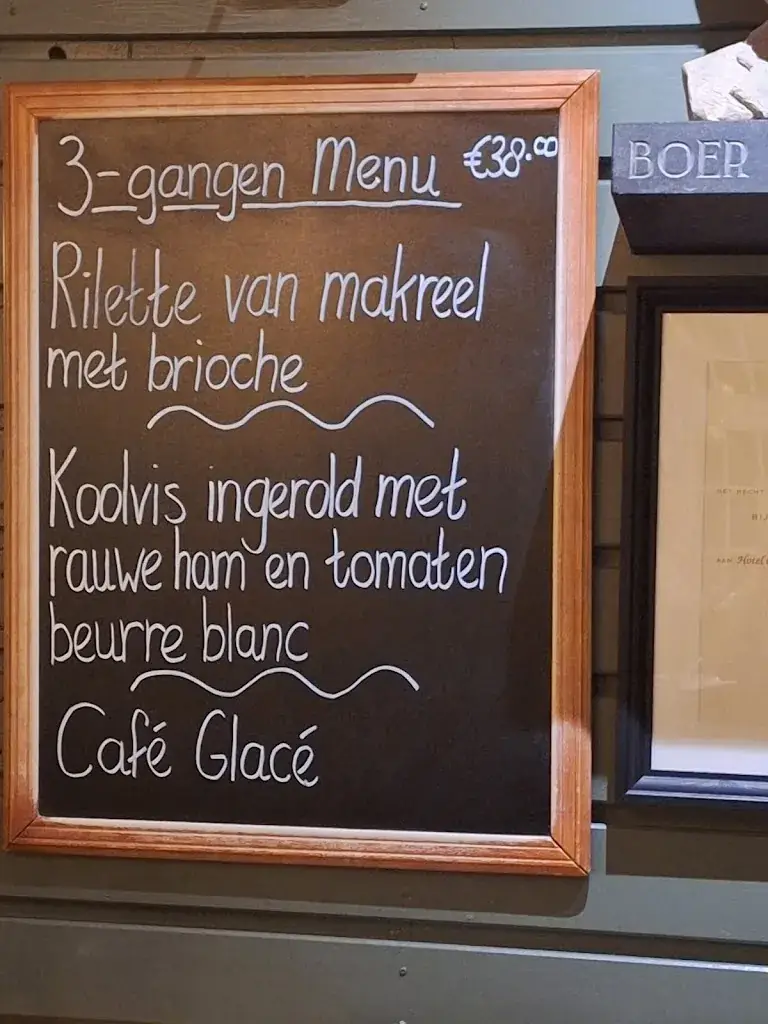 3-gangen Menu €38.00
Rilette van makreel
met brioche
Koolvis ingerold met
rauwe ham en tomaten
beurre blanc
Café Glacé
BOER
Hotel